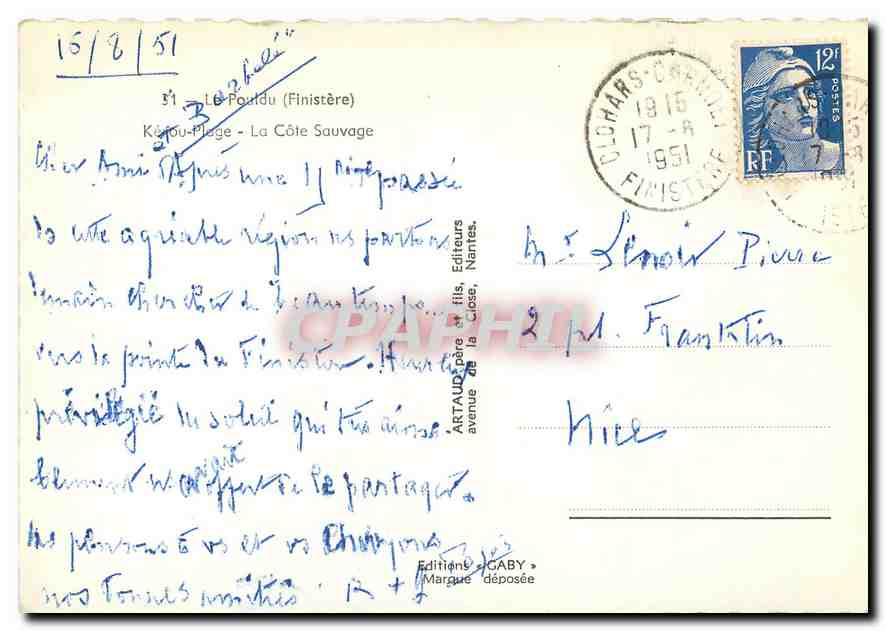 16/8/51
31 - Le Pouldu (Finistère)
Kéfou-Plage - La Côte Sauvage
Cher Ami Après une
passée
ds cette agréable région ns partons
demain chercher le beau temps...
vers la pointe du Finistère.
privilégié du soleil qui très aima-
blement avait offert de le partager.
ns pensons à vs et vs envoyons
nos bonnes amitiés. R + J
ARTAUD père et fils, Editeurs
avenue de la Close, Nantes.
Editions « GABY »
Marque déposée
CLOHARS-CARNOET
1915
17-8
1951
FINISTERE
12F
POSTES
RF
Mr. Lenoir Pierre
2 pl. Franklin
Nice
CPAPHIL